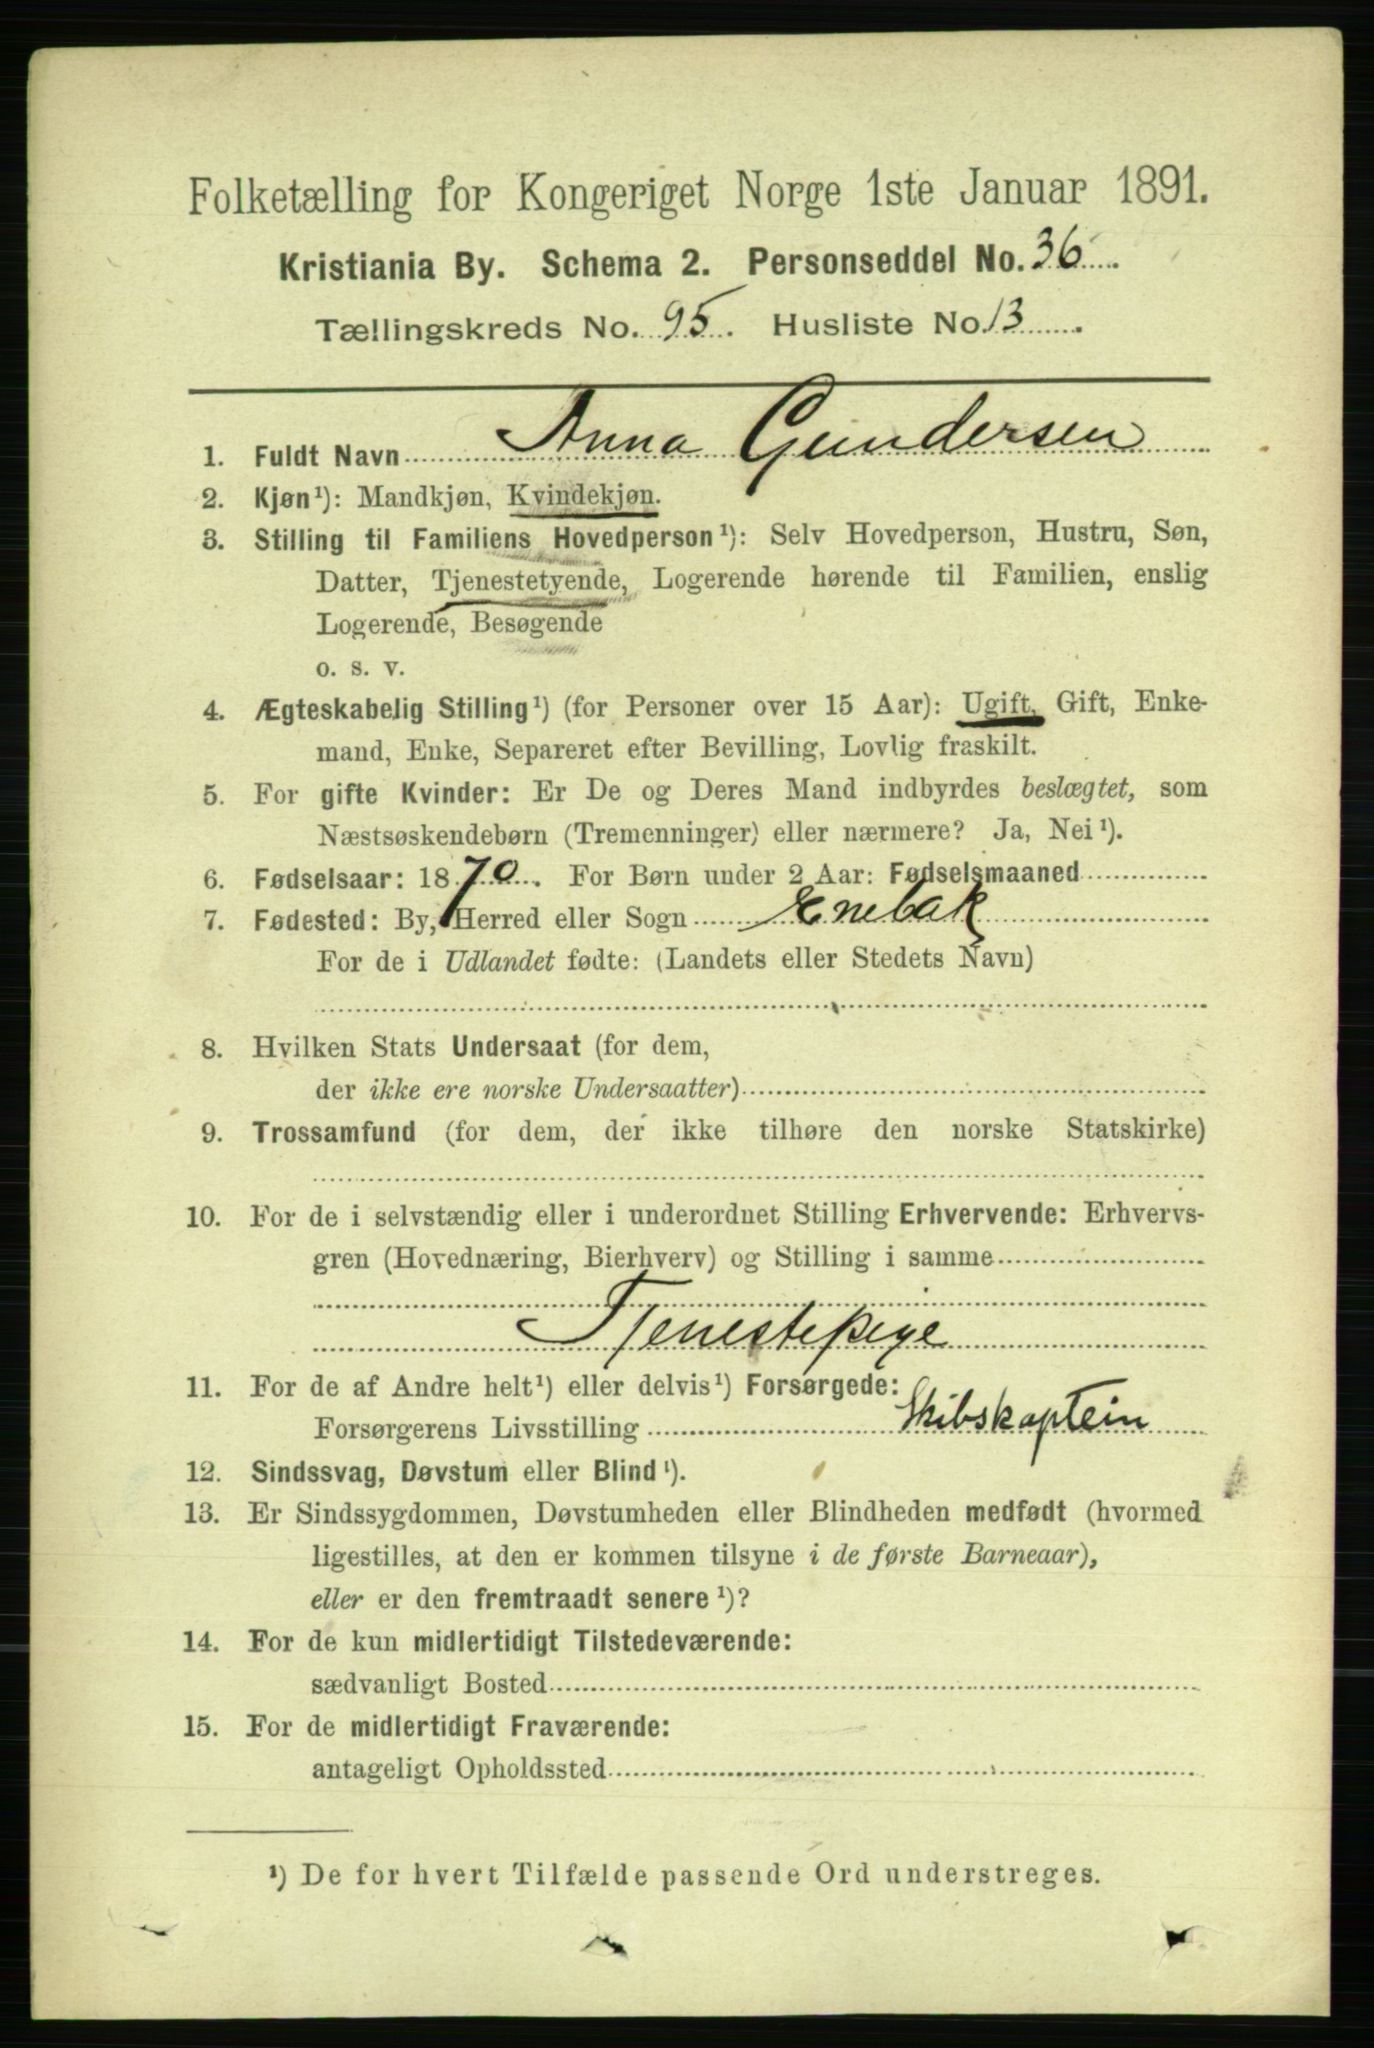 Folketælling for Kongeriget Norge 1ste Januar 1891.
Kristiania By. Schema 2. Personseddel No. 36
Tællingskreds No. 95. Husliste No. 13.
1. Fuldt Navn Anna Gundersen
2. Kjøn¹): Mandkjøn, Kvindekjøn.
3. Stilling til Familiens Hovedperson¹): Selv Hovedperson, Hustru, Søn,
Datter, Tjenestetyende, Logerende hørende til Familien, enslig
Logerende, Besøgende
o. s. v.
4. Ægteskabelig Stilling¹) (for Personer over 15 Aar): Ugift, Gift, Enke-
mand, Enke, Separeret efter Bevilling, Lovlig fraskilt.
5. For gifte Kvinder: Er De og Deres Mand indbyrdes beslægtet, som
Næstsøskendebørn (Tremenninger) eller nærmere? Ja, Nei¹).
6. Fødselsaar: 1870. For Børn under 2 Aar: Fødselsmaaned
7. Fødested: By, Herred eller Sogn Enebak
For de i Udlandet fødte: (Landets eller Stedets Navn)
8. Hvilken Stats Undersaat (for dem,
der ikke ere norske Undersaatter)
9. Trossamfund (for dem, der ikke tilhøre den norske Statskirke)
10. For de i selvstændig eller i underordnet Stilling Erhvervende: Erhvervs-
gren (Hovednæring, Bierhverv) og Stilling i samme
Tjenestepige
11. For de af Andre helt¹) eller delvis¹) Forsørgede:
Forsørgerens Livsstilling Skibskaptein
12. Sindssvag, Døvstum eller Blind¹).
13. Er Sindssygdommen, Døvstumheden eller Blindheden medfødt (hvormed
ligestilles, at den er kommen tilsyne i de første Barneaar),
eller er den fremtraadt senere¹)?
14. For de kun midlertidigt Tilstedeværende:
sædvanligt Bosted
15. For de midlertidigt Fraværende:
antageligt Opholdssted
¹) De for hvert Tilfælde passende Ord understreges.